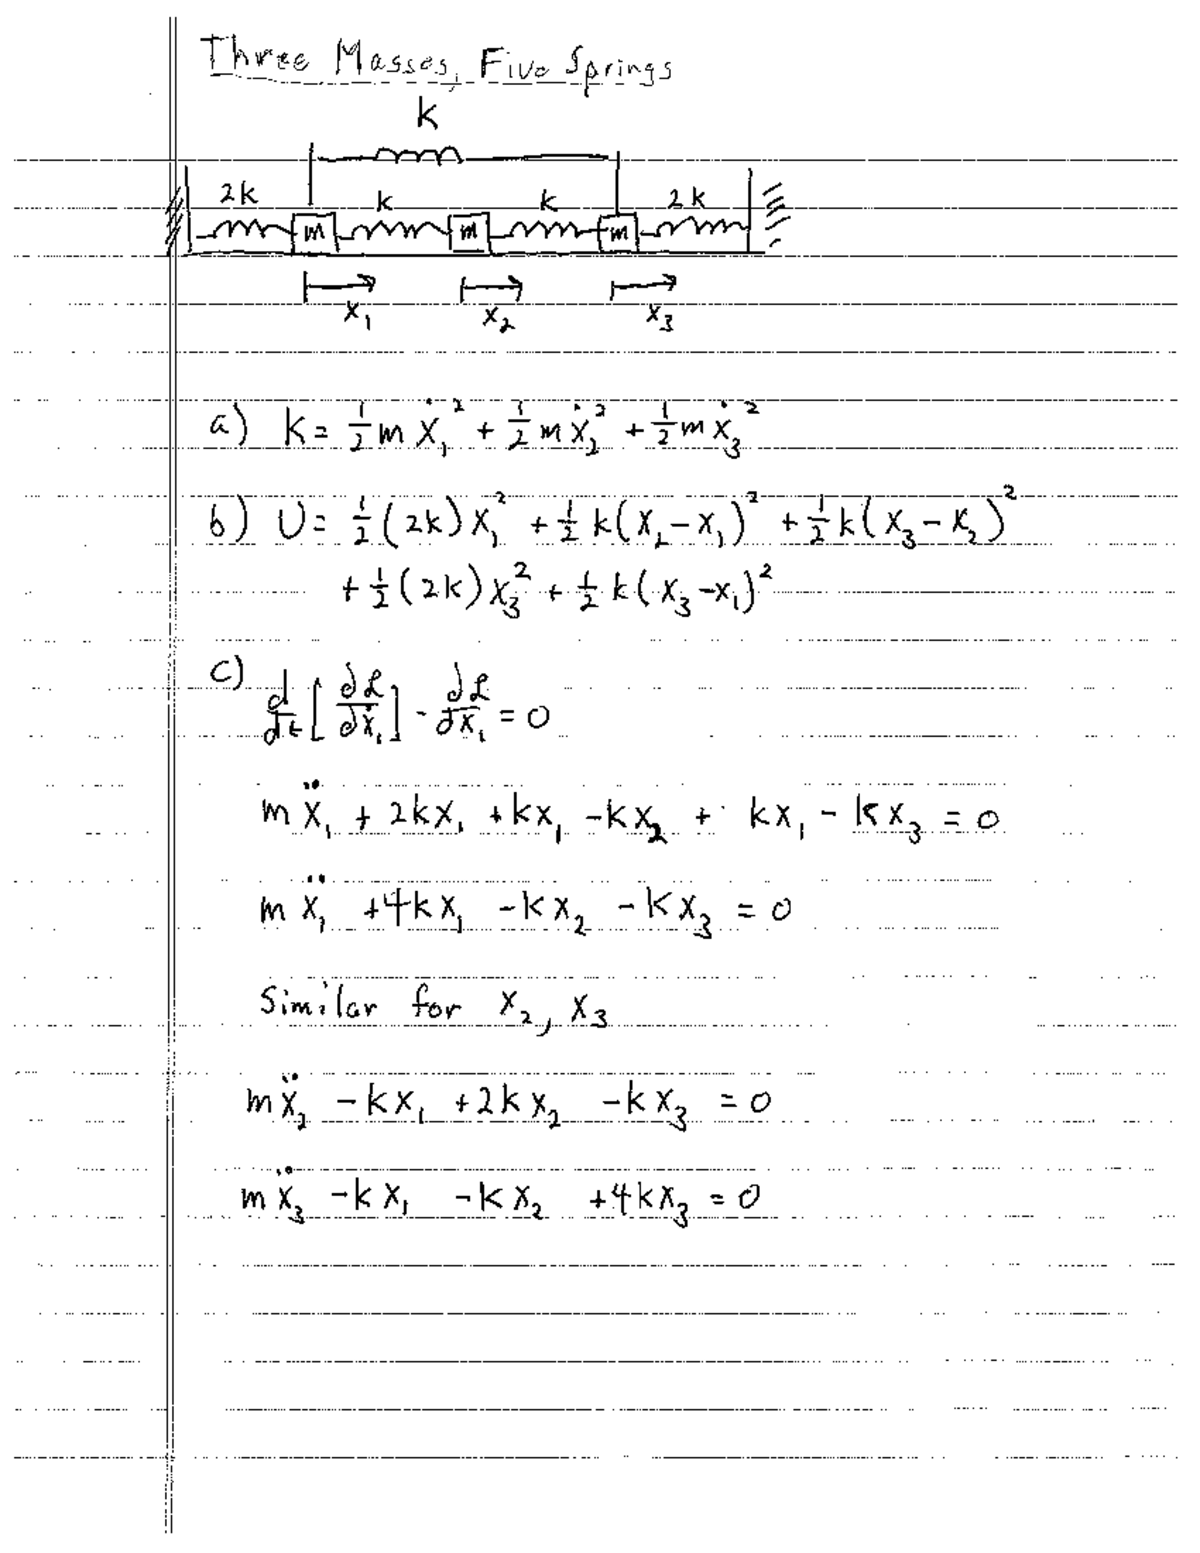 Three Masses, Five Springs
k
2k k k 2k
m m m
x₁ x₂ x₃
a) K = ½ m ẋ₁² + ½ m ẋ₂² + ½ m ẋ₃²
b) U = ½ (2k) x₁² + ½ k (x₂ − x₁)² + ½ k (x₃ − x₂)²
+ ½ (2k) x₃² + ½ k (x₃ − x₁)²
c) d/dt [∂ℒ/∂ẋ₁] − ∂ℒ/∂x₁ = 0
m ẍ₁ + 2kx₁ + kx₁ − kx₂ + kx₁ − kx₃ = 0
m ẍ₁ + 4kx₁ − kx₂ − kx₃ = 0
Similar for x₂, x₃
m ẍ₂ − kx₁ + 2kx₂ − kx₃ = 0
m ẍ₃ − kx₁ − kx₂ + 4kx₃ = 0